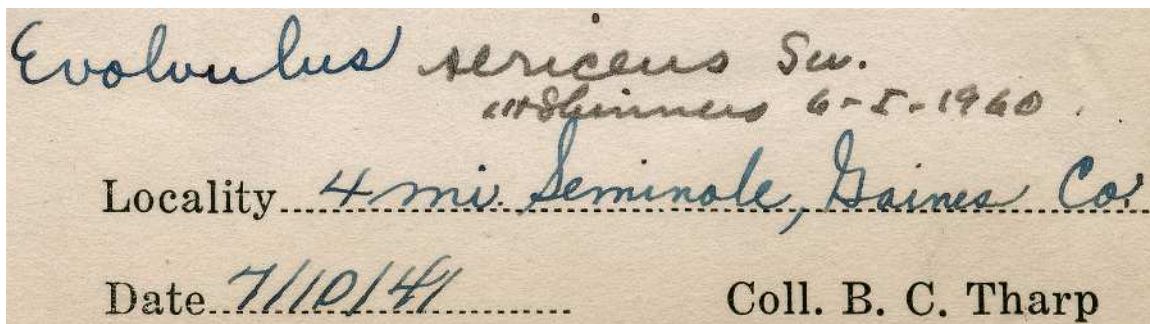 Evolvulus sericeus Sw.
LH Shinners 6-5-1960.
Locality 4 mi. Seminole, Gaines Co.
Date 7/10/41 Coll. B. C. Tharp